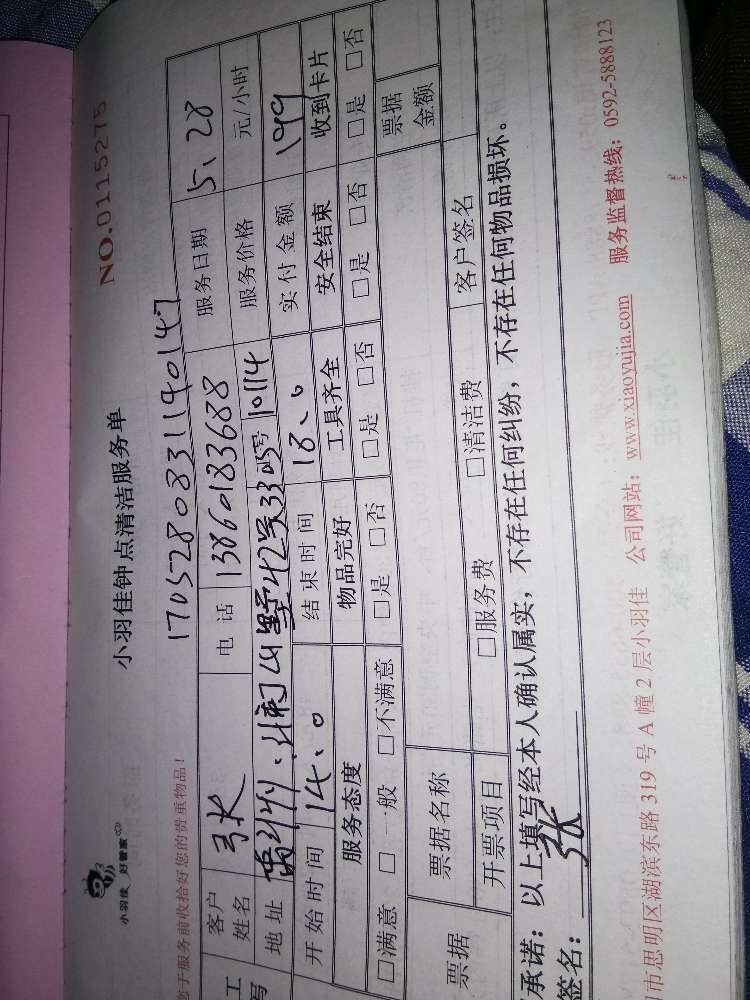 小羽佳 好管家
小羽佳钟点清洁服务单
NO.0115275
于服务前收拾好您的贵重物品！
1705280831140147
工
写
客户姓名
张
电 话
13860183688
服务日期
5.28
地址
禹州·湖山墅42号3305号10114
服务价格
元/小时
开始时间
14.0
结束时间
18.0
实付金额
199
服务态度
物品完好
工具齐全
安全结束
收到卡片
□满意 □一般 □不满意
□是 □否
□是 □否
□是 □否
□是 □否
票据
票据名称
票据金额
开票项目
□服务费
□清洁费
客户签名
承诺：以上填写经本人确认属实，不存在任何纠纷，不存在任何物品损坏。
签名：张
市思明区湖滨东路 319 号 A 幢 2 层小羽佳 公司网站：www.xiaoyujia.com 服务监督热线：0592-5888123